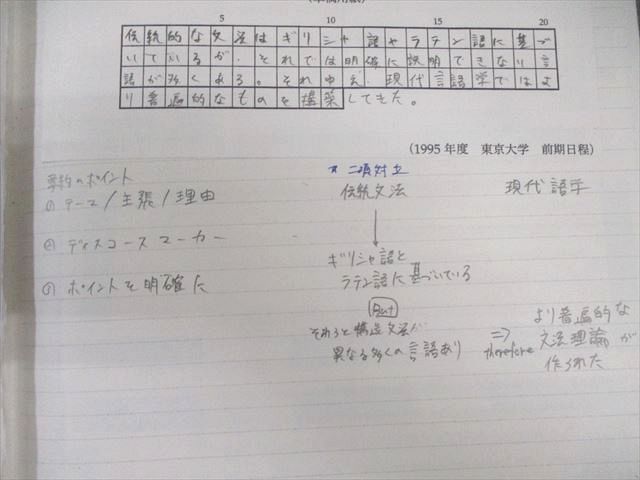 5 10 15 20
伝統的な文法はギリシャ語やラテン語に基づ
いているが、それでは明確に説明できない言
語が多くある。それゆえ、現代言語学ではよ
り普遍的なものを提案してきた。
(1995年度 東京大学 前期日程)
要約のポイント
① テーマ/主張/理由
② ディスコースマーカー
③ ポイントを明確に
二項対立
伝統文法
現代語学
ギリシャ語と
ラテン語に基づいている
But
それらと構造文法が
異なる多くの言語あり
⇒
therefore
より普遍的な
文法理論が
作られた